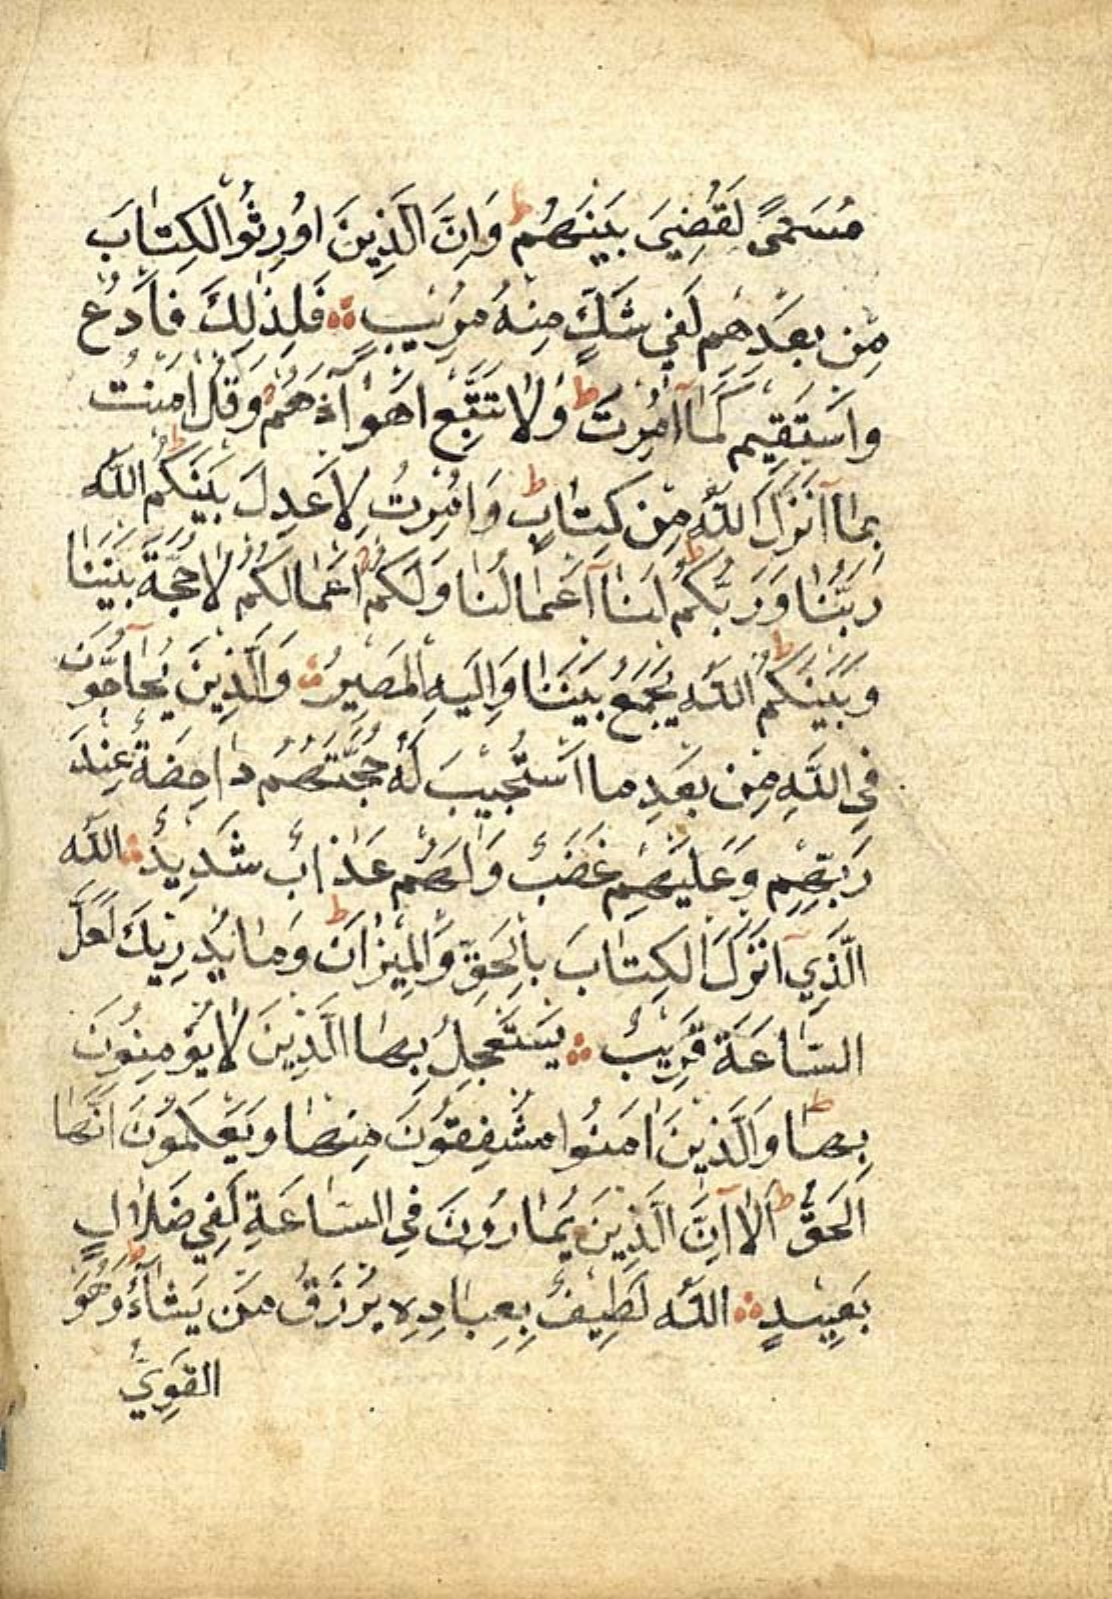 مُسَمًّى لَقُضِيَ بَيْنَهُمْ ط وَاِنَّ الَّذِينَ اُورِثُوا الْكِتَابَ
مِنْ بَعْدِهِمْ لَفِي شَكٍّ مِنْهُ مُرِيْبٍ ۞ فَلِذٰلِكَ فَادْعُ
وَاسْتَقِيْمْ كَمَآ اُمِرْتَ ط وَلَا تَتَّبِعْ اَهْوَآءَهُمْ وَقُلْ اٰمَنْتُ
بِمَآ اَنْزَلَ اللّٰهُ مِنْ كِتَابٍ ط وَاُمِرْتُ لِاَعْدِلَ بَيْنَكُمْ ط اللّٰهُ
رَبُّنَا وَرَبُّكُمْ ط لَنَآ اَعْمَالُنَا وَلَكُمْ اَعْمَالُكُمْ لَا حُجَّةَ بَيْنَنَا
وَبَيْنَكُمْ ط اللّٰهُ يَجْمَعُ بَيْنَنَا وَاِلَيْهِ الْمَصِيْرُ ۞ وَالَّذِينَ يُحَآجُّونَ
فِي اللّٰهِ مِنْ بَعْدِ مَا اسْتُجِيْبَ لَهُ حُجَّتُهُمْ دَاحِضَةٌ عِنْدَ
رَبِّهِمْ وَعَلَيْهِمْ غَضَبٌ وَلَهُمْ عَذَابٌ شَدِيْدٌ ۞ اللّٰهُ
الَّذِيٓ اَنْزَلَ الْكِتَابَ بِالْحَقِّ وَالْمِيْزَانَ ط وَمَا يُدْرِيْكَ لَعَلَّ
السَّاعَةَ قَرِيْبٌ ۞ يَسْتَعْجِلُ بِهَا الَّذِينَ لَا يُؤْمِنُونَ
بِهَا ط وَالَّذِينَ اٰمَنُوا مُشْفِقُونَ مِنْهَا وَيَعْلَمُونَ اَنَّهَا
الْحَقُّ ط اَلَآ اِنَّ الَّذِينَ يُمَارُونَ فِي السَّاعَةِ لَفِي ضَلَالٍ
بَعِيْدٍ ۞ اللّٰهُ لَطِيْفٌ بِعِبَادِهِ يَرْزُقُ مَنْ يَشَآءُ ط وَهُوَ
الْقَوِيُّ